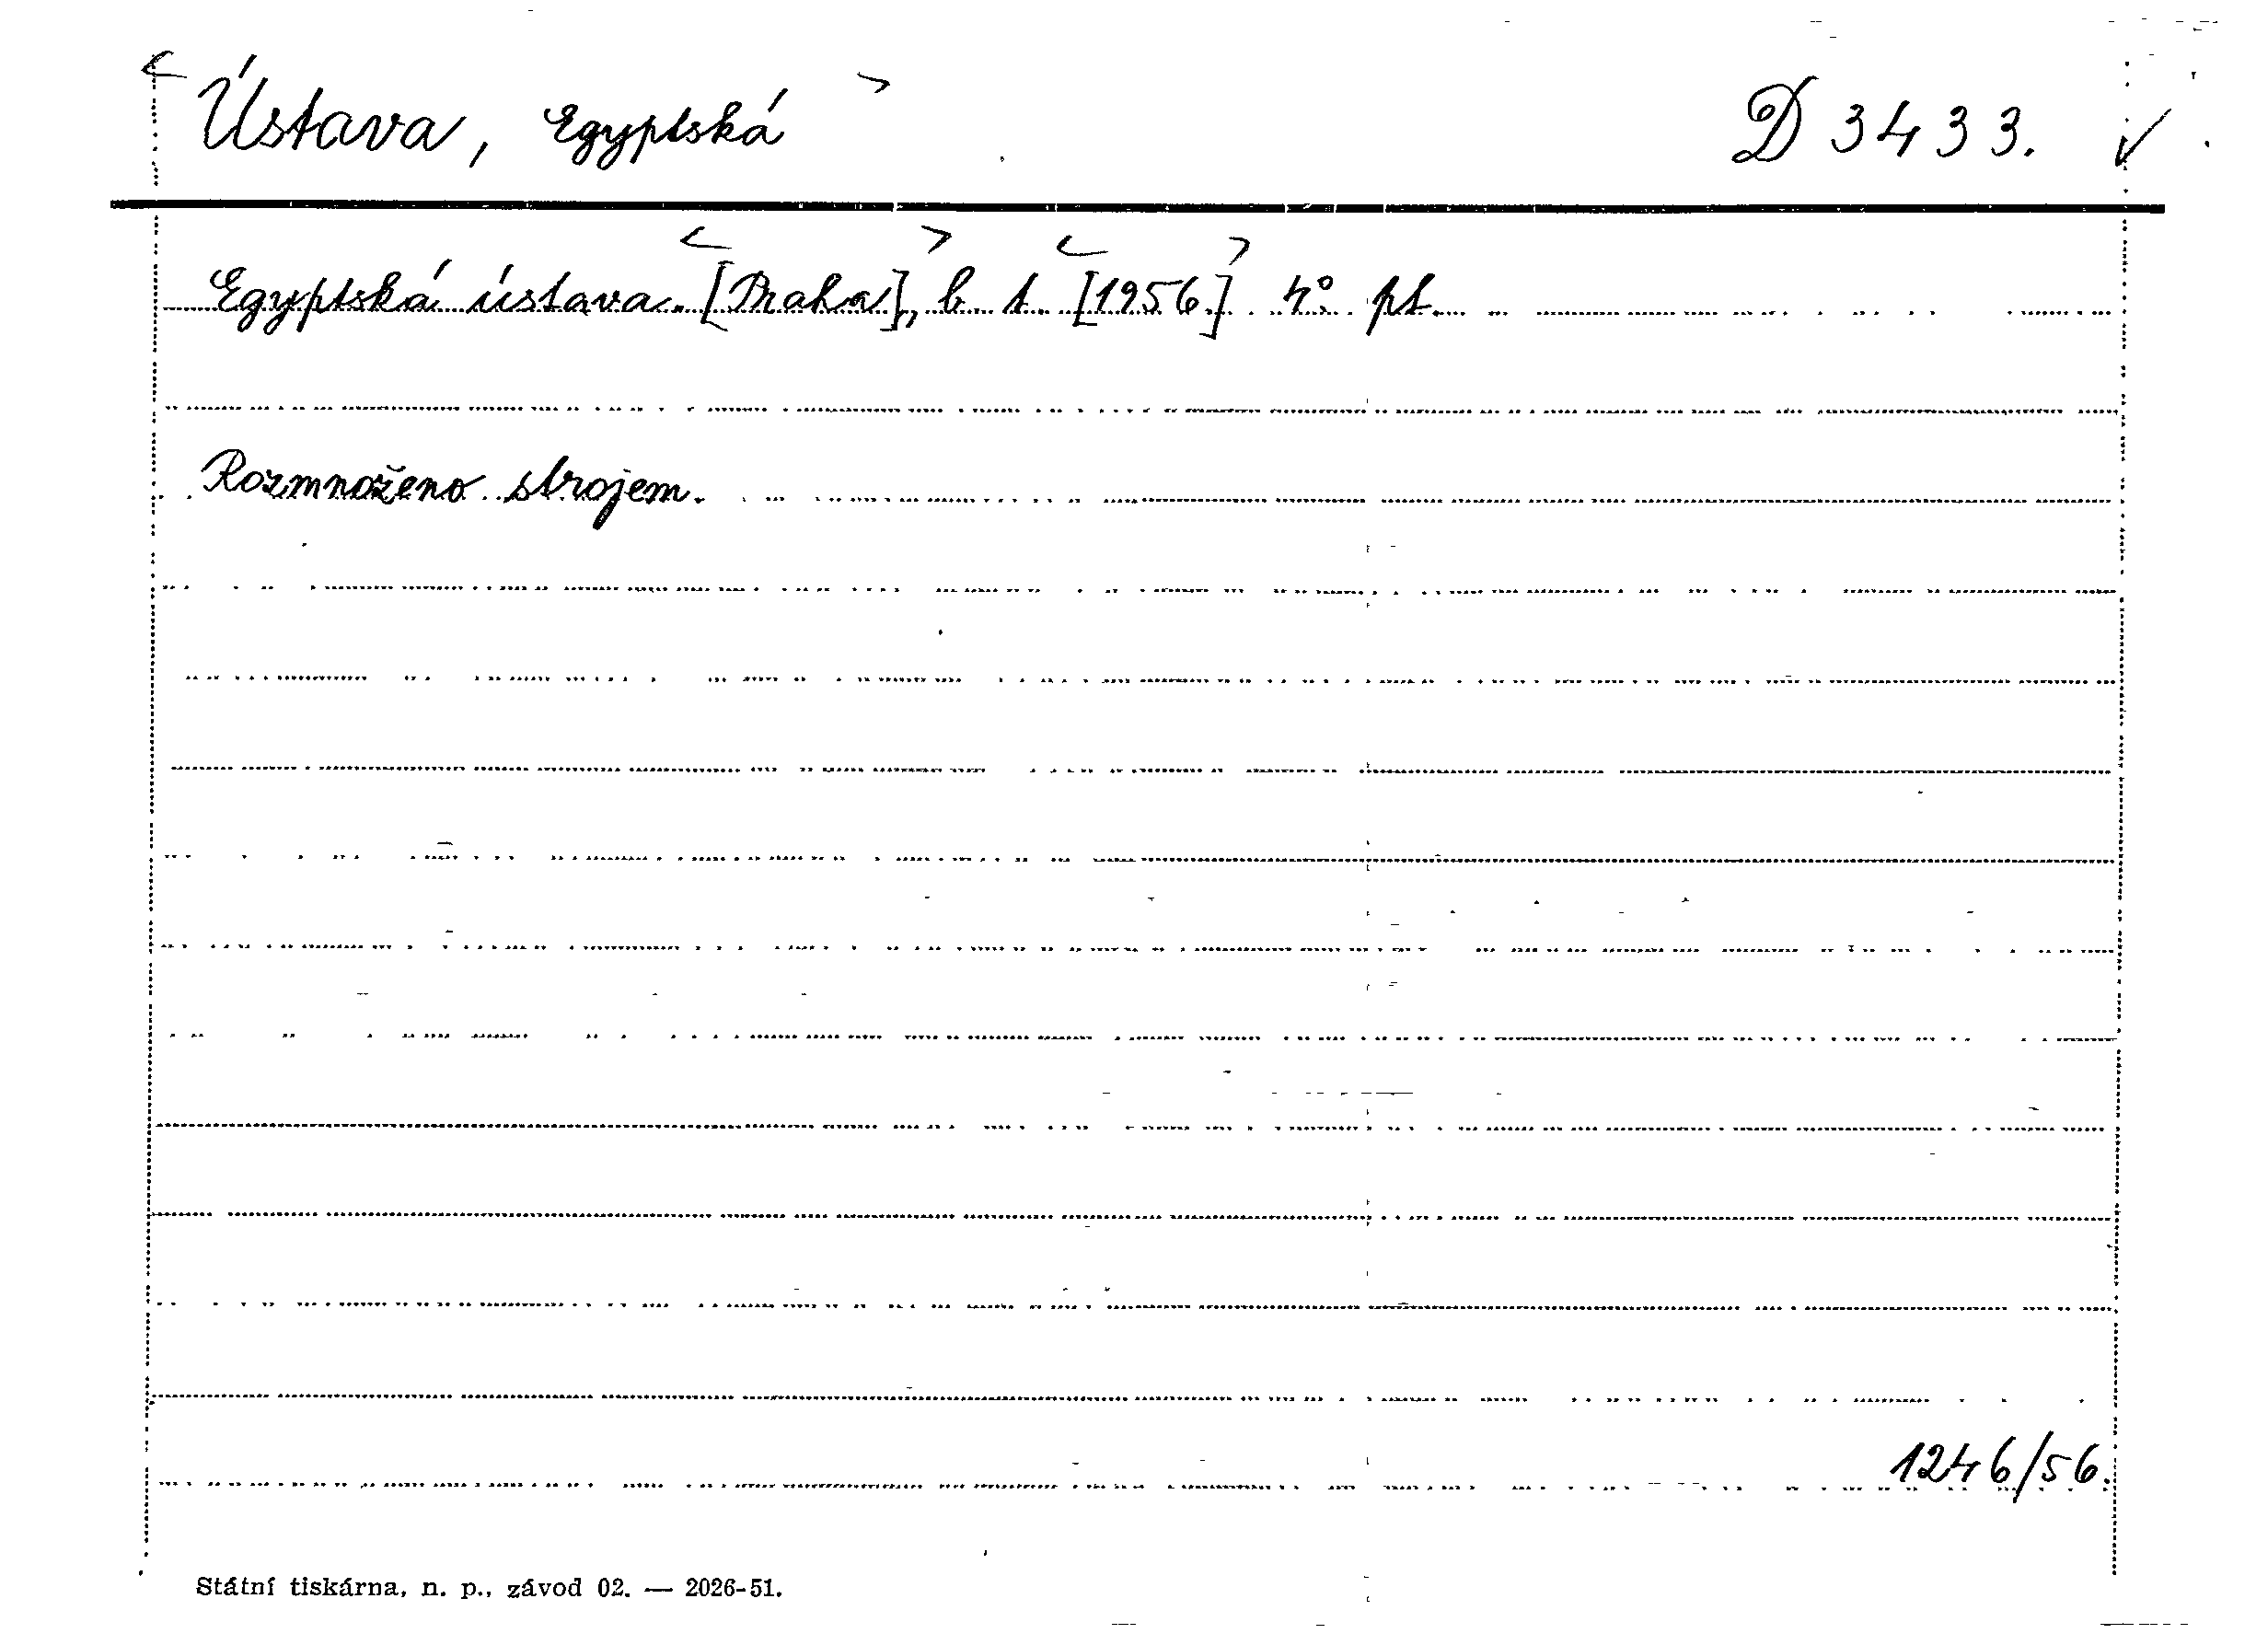 < Ústava, Egyptská > D 3433. ✓
Egyptská ústava. <[Praha]>, b. t. <[1956]> 4° pt.
Rozmnoženo strojem.
1246/56.
Státní tiskárna, n. p., závod 02. — 2026-51.